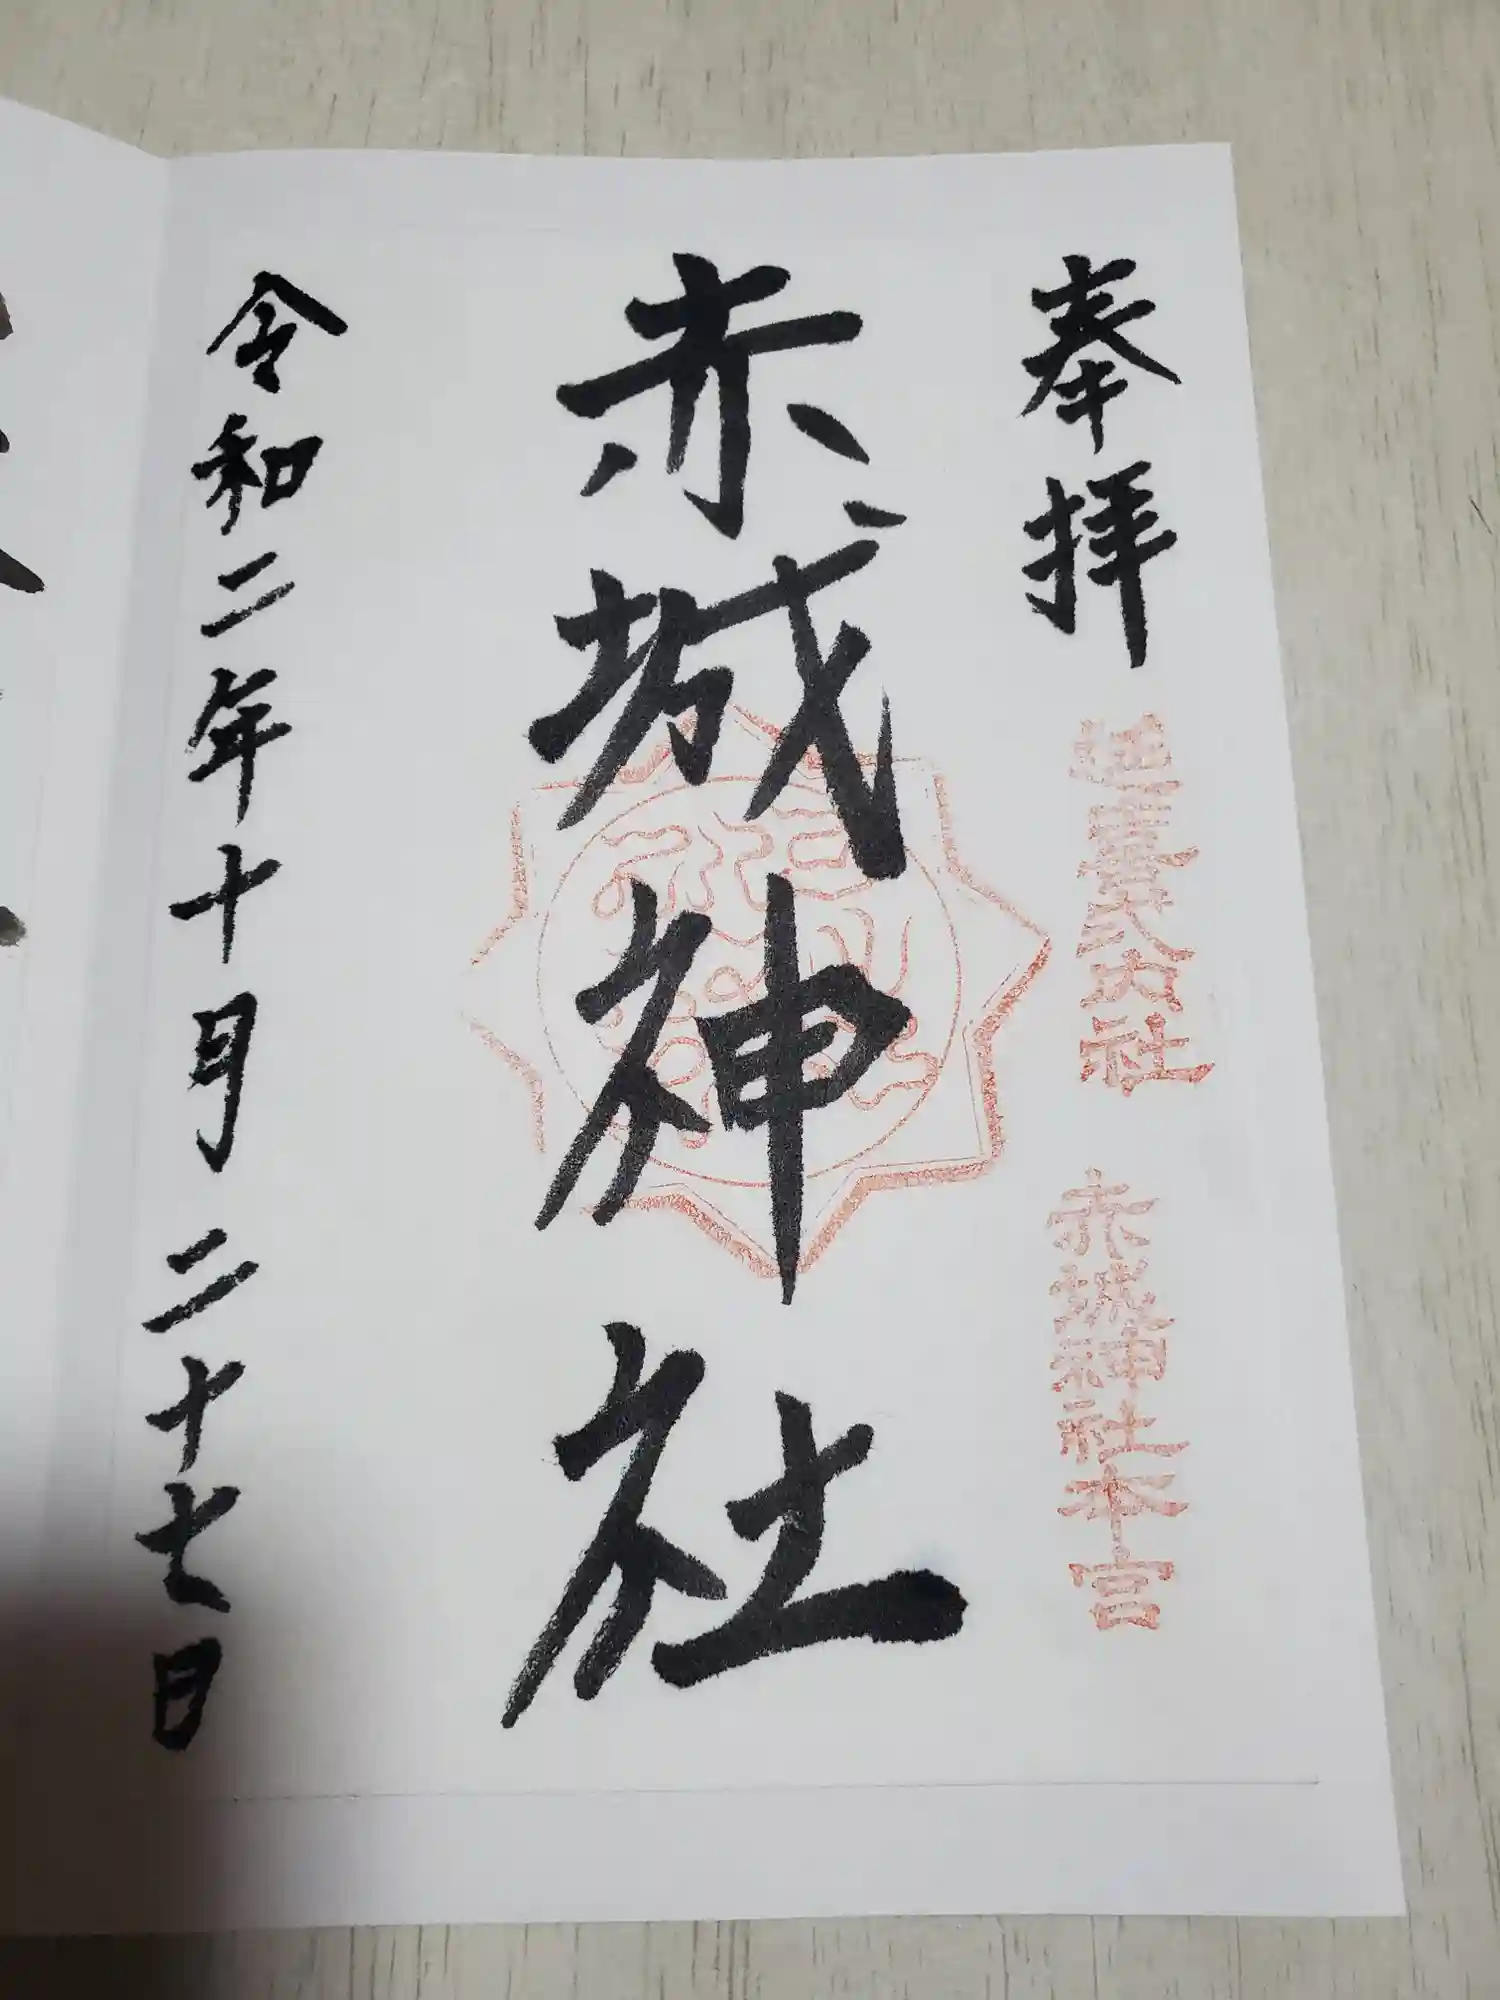 奉拝
延喜式内社 赤城神社本宮
赤城神社
令和二年十月二十七日